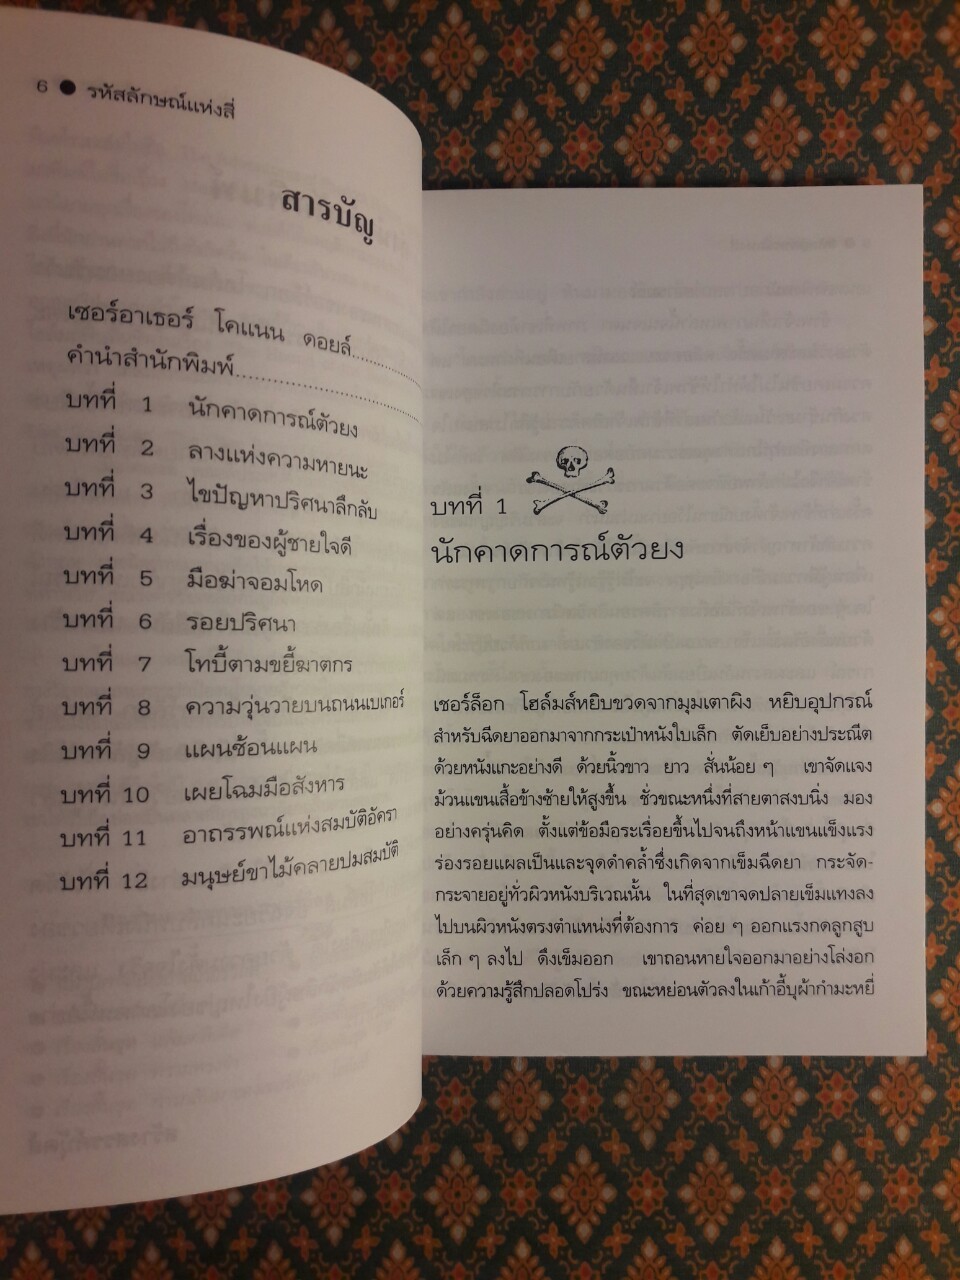 6 ● รหัสลักษณ์แห่งสี่
สารบัญ
เซอร์อาเธอร์ โคแนน ดอยล์
คำนำสำนักพิมพ์
บทที่ 1 นักคาดการณ์ตัวยง
บทที่ 2 ลางแห่งความหายนะ
บทที่ 3 ไขปัญหาปริศนาลึกลับ
บทที่ 4 เรื่องของผู้ชายใจดี
บทที่ 5 มือฆ่าจอมโหด
บทที่ 6 รอยปริศนา
บทที่ 7 โทบี้ตามขยี้ฆาตกร
บทที่ 8 ความวุ่นวายบนถนนเบเกอร์
บทที่ 9 แผนซ้อนแผน
บทที่ 10 เผยโฉมมือสังหาร
บทที่ 11 อาถรรพณ์แห่งสมบัติอัครา
บทที่ 12 มนุษย์ขาไม้คลายปมสมบัติ
บทที่ 1
นักคาดการณ์ตัวยง
เชอร์ล็อก โฮล์มส์หยิบขวดจากมุมเตาผิง หยิบอุปกรณ์
สำหรับฉีดยาออกมาจากกระเป๋าหนังใบเล็ก ตัดเย็บอย่างประณีต
ด้วยหนังแกะอย่างดี ด้วยนิ้วขาว ยาว สั่นน้อย ๆ เขาจัดแจง
ม้วนแขนเสื้อข้างซ้ายให้สูงขึ้น ชั่วขณะหนึ่งที่สายตาสงบนิ่ง มอง
อย่างครุ่นคิด ตั้งแต่ข้อมือระเรื่อยขึ้นไปจนถึงหน้าแขนแข็งแรง
ร่องรอยแผลเป็นและจุดดำคล้ำซึ่งเกิดจากเข็มฉีดยา กระจัด-
กระจายอยู่ทั่วผิวหนังบริเวณนั้น ในที่สุดเขาจดปลายเข็มแทงลง
ไปบนผิวหนังตรงตำแหน่งที่ต้องการ ค่อย ๆ ออกแรงกดลูกสูบ
เล็ก ๆ ลงไป ดึงเข็มออก เขาถอนหายใจออกมาอย่างโล่งอก
ด้วยความรู้สึกปลอดโปร่ง ขณะหย่อนตัวลงในเก้าอี้บุผ้ากำมะหยี่